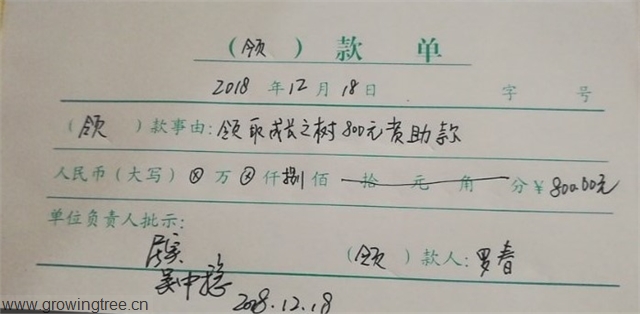 （领）款单
2018年12月18日 字 号
（领）款事由：领取成长之树800元资助款
人民币（大写）⊗万⊗仟捌佰拾元角分￥800.00元
单位负责人批示：
属实 （领）款人：罗春
吴中稳
2018.12.18
www.growingtree.cn